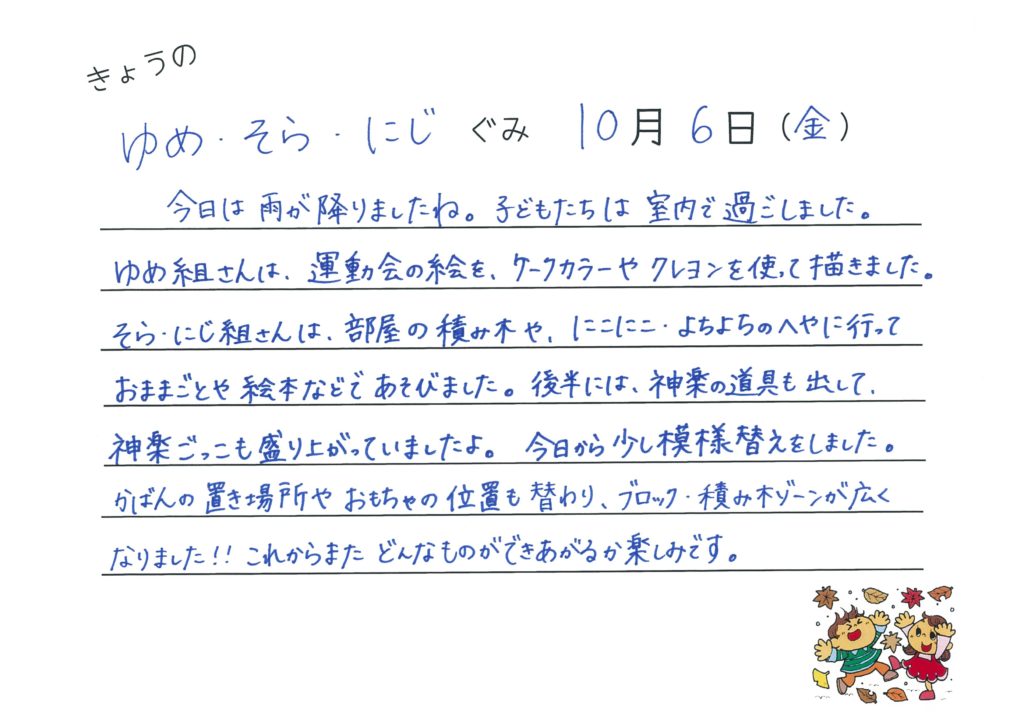 きょうの
ゆめ・そら・にじ ぐみ 10月6日(金)
今日は雨が降りましたね。子どもたちは室内で過ごしました。
ゆめ組さんは、運動会の絵を、ケークカラーやクレヨンを使って描きました。
そら・にじ組さんは、部屋の積み木や、にこにこ・よちよちのへやに行って
おままごとや絵本などであそびました。後半には、神楽の道具も出して、
神楽ごっこも盛り上がっていましたよ。 今日から少し模様替えをしました。
かばんの置き場所やおもちゃの位置も替わり、ブロック・積み木ゾーンが広く
なりました!! これからまたどんなものができあがるか楽しみです。